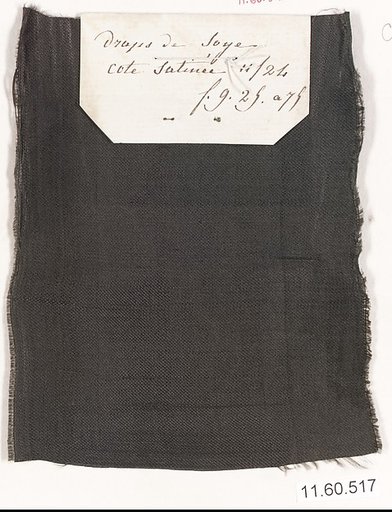 Draps de Soye
coté Satinée 11/24
f. 9. 25. a 75
11.60.517